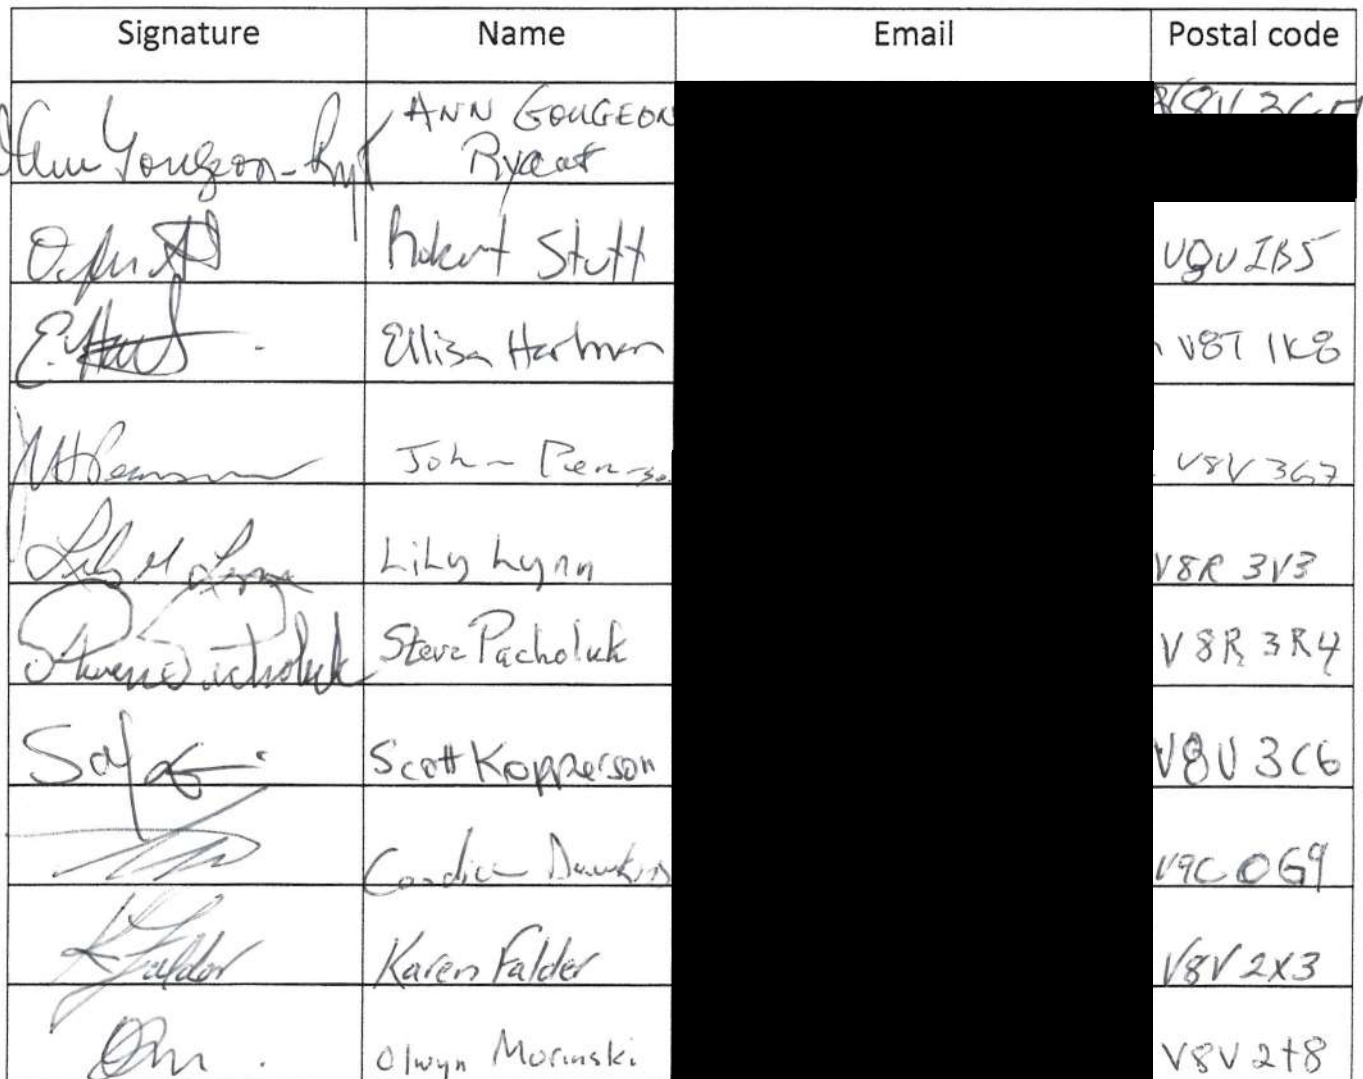 Signature Name Email Postal code
Ann Gougeon-Ryc ANN GOUGEON
Rycat
Robert Stutt V8V 1B5
E. Hart Ellisa Hartman V8T 1K8
John V8V 3G7
Lily M Lynn Lily Lynn V8R 3V3
Steve Pacholuk V8R 3R4
Scott Kopperson V8V 3C6
Candice Dawkins V9C 0G9
K Falder Karen Falder V8V 2X3
Olwyn Morinski V8V 2t8